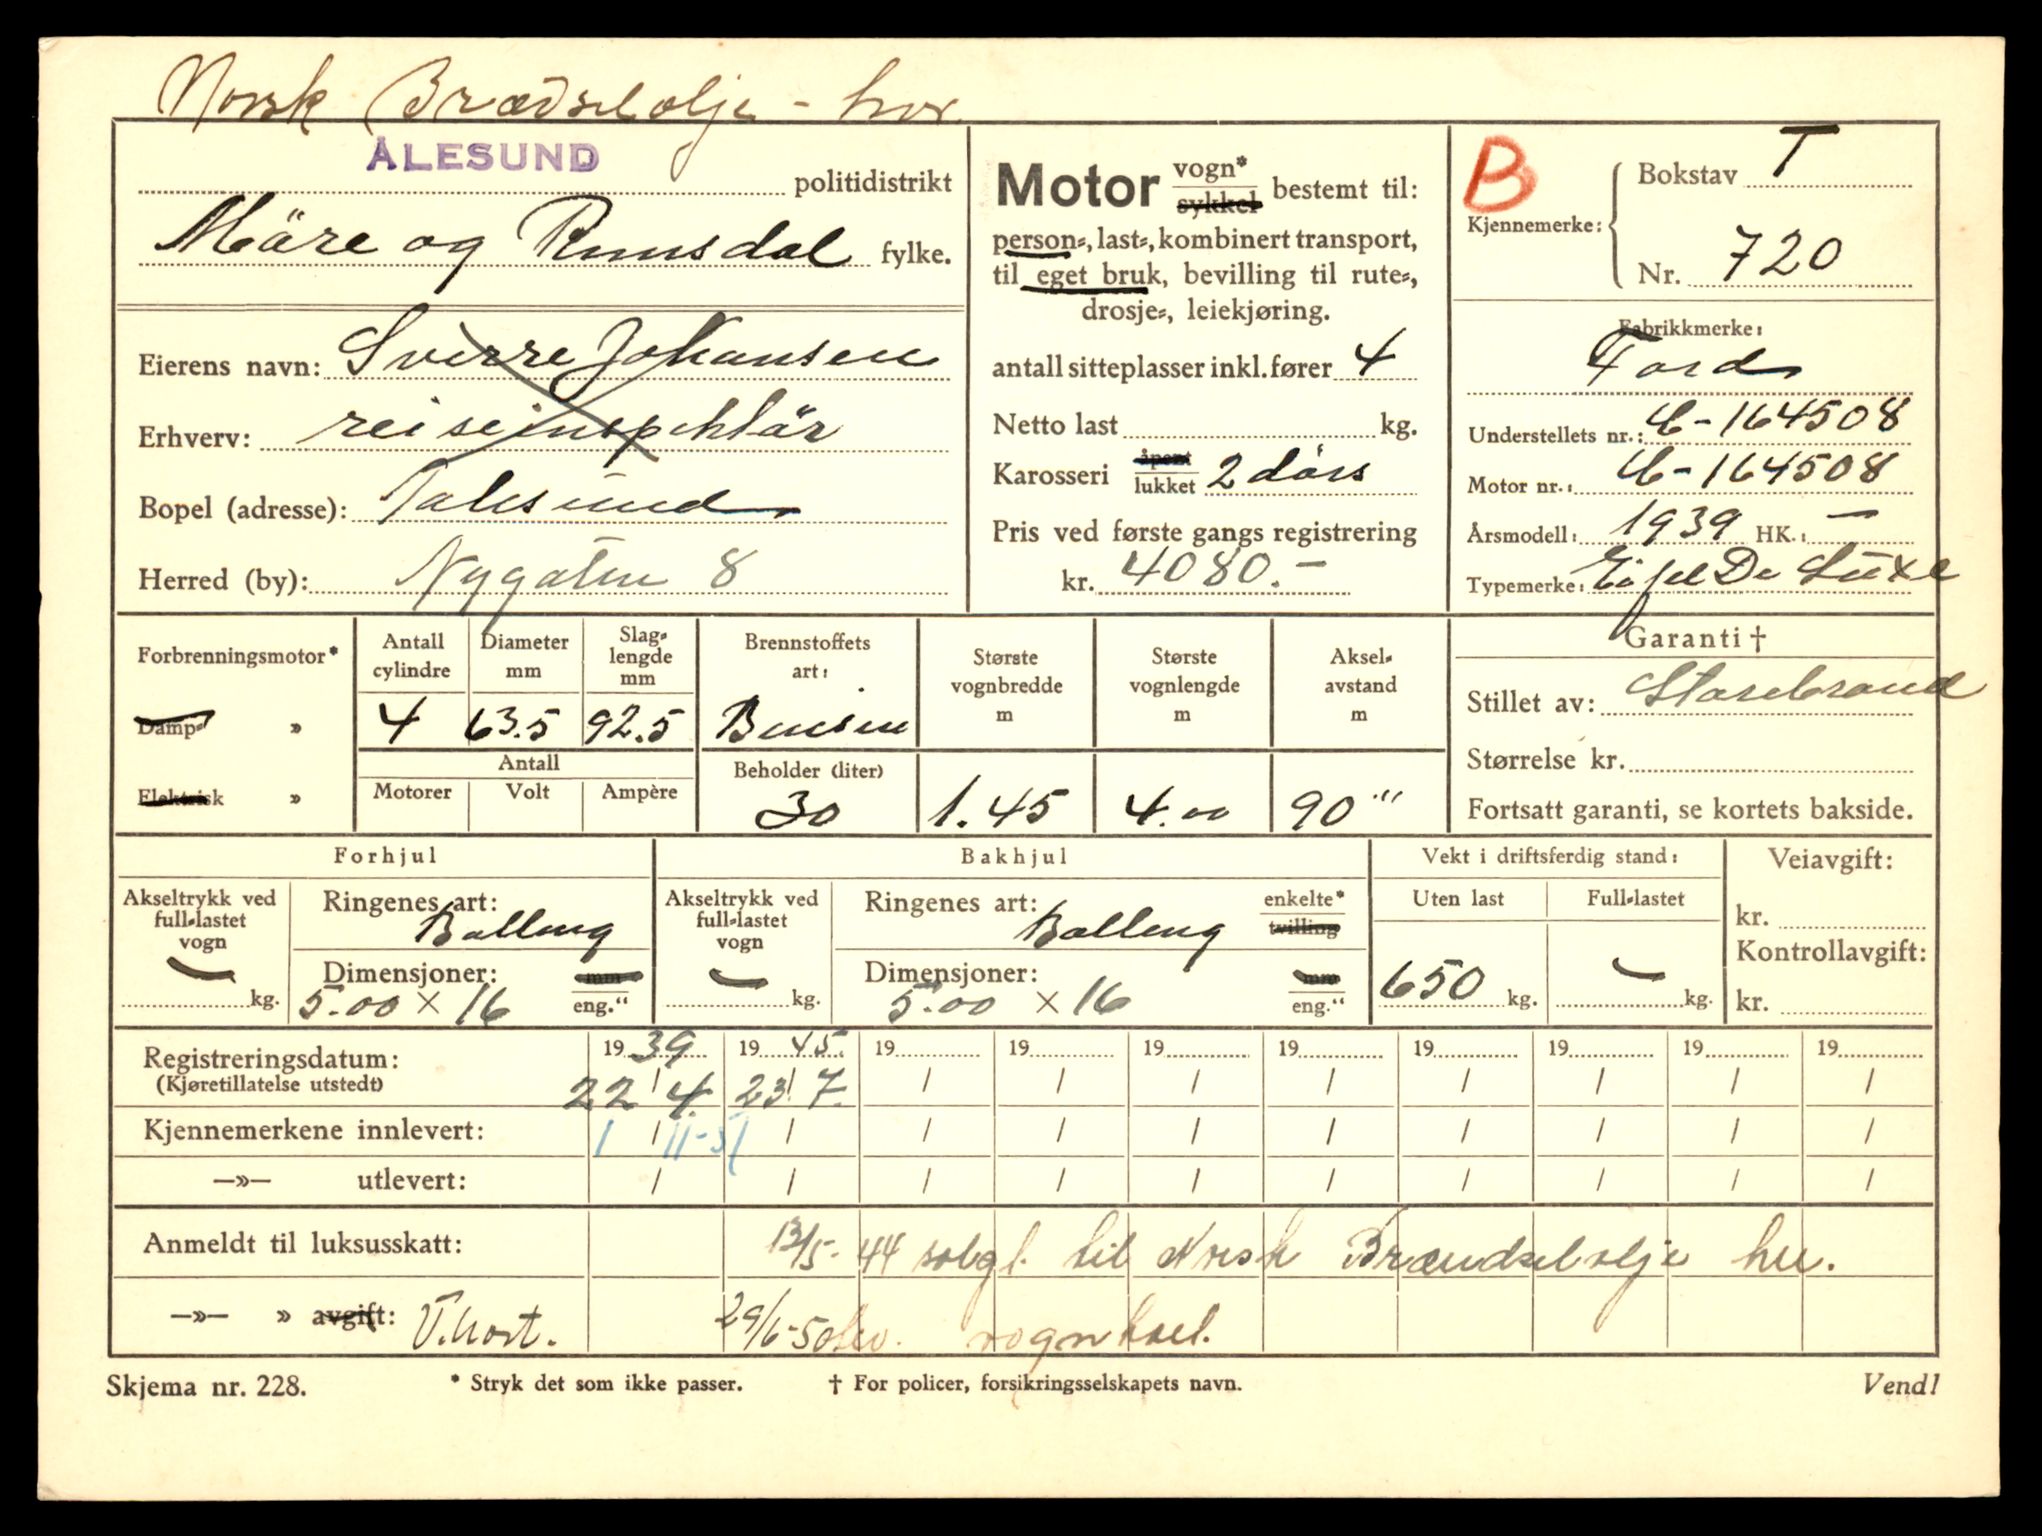 Norsk Brædselolje - her
ÅLESUND politidistrikt
Märe og Rumsdal fylke.
Eierens navn: Sverre Johansen
Erhverv: reiseinspektör
Bopel (adresse): Aalesund
Herred (by): Nygaten 8
Motor vogn* sykkel bestemt til:
person-, last-, kombinert transport,
til eget bruk, bevilling til rute-,
drosje-, leiekjøring.
antall sitteplasser inkl. fører 4
Netto last kg.
Karosseri åpent lukket 2 dørs
Pris ved første gangs registrering
kr. 4080.-
B
Kjennemerke: Bokstav T
Nr. 720
Fabrikkmerke:
Ford
Understellets nr.: C-164508
Motor nr.: C-164508
Årsmodell: 1939 HK.: —
Typemerke: Eifel De Luxe
Forbrenningsmotor*
Damp- »
Elektrisk »
Antall cylindre 4
Diameter mm 63.5
Slag-lengde mm 92.5
Antall
Motorer Volt Ampère
Brennstoffets art: Bensin
Beholder (liter) 30
Største vognbredde m 1.45
Største vognlengde m 4.00
Aksel-avstand m 90"
Garanti †
Stillet av: Storebrand
Størrelse kr.
Fortsatt garanti, se kortets bakside.
Forhjul
Akseltrykk ved full-lastet vogn — kg.
Ringenes art: Ballong
Dimensjoner: mm
5.00 x 16 eng."
Bakhjul
Akseltrykk ved full-lastet vogn — kg.
Ringenes art: Ballong enkelte* tvilling
Dimensjoner: mm
5.00 x 16 eng."
Vekt i driftsferdig stand:
Uten last Full-lastet
650 kg. — kg.
Veiavgift:
kr.
Kontrollavgift:
kr.
Registreringsdatum: 19 39 19 45. 19 19 19 19 19 19 19 19
(Kjøretillatelse utstedt) 22 / 4. 23 / 7. / / / / / / / /
Kjennemerkene innlevert: 1 / 11-51 / / / / / / / / /
—»— utlevert: / / / / / / / / / /
Anmeldt til luksusskatt: 13/5. 44 solgt til Norsk Brændselolje her.
—»— » avgift: V.kort. 29/6-50 lev. vognkort.
Skjema nr. 228. * Stryk det som ikke passer. † For policer, forsikringsselskapets navn. Vend!